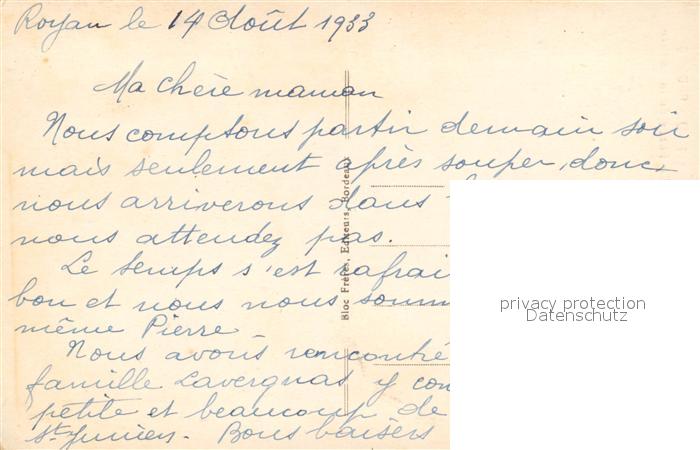 Royan le 14 Août 1933
Ma chère maman
Nous comptons partir demain soir
mais seulement après souper, donc
nous arriverons dans
nous attendez pas.
Le temps s'est rafrai
bon et nous nous somm
même Pierre
Nous avons rencontré
famille Lavergnas y con
petite et beaucoup de
St Junien. Bons baisers
Bloc Frères, Editeurs, Bordeaux
privacy protection
Datenschutz